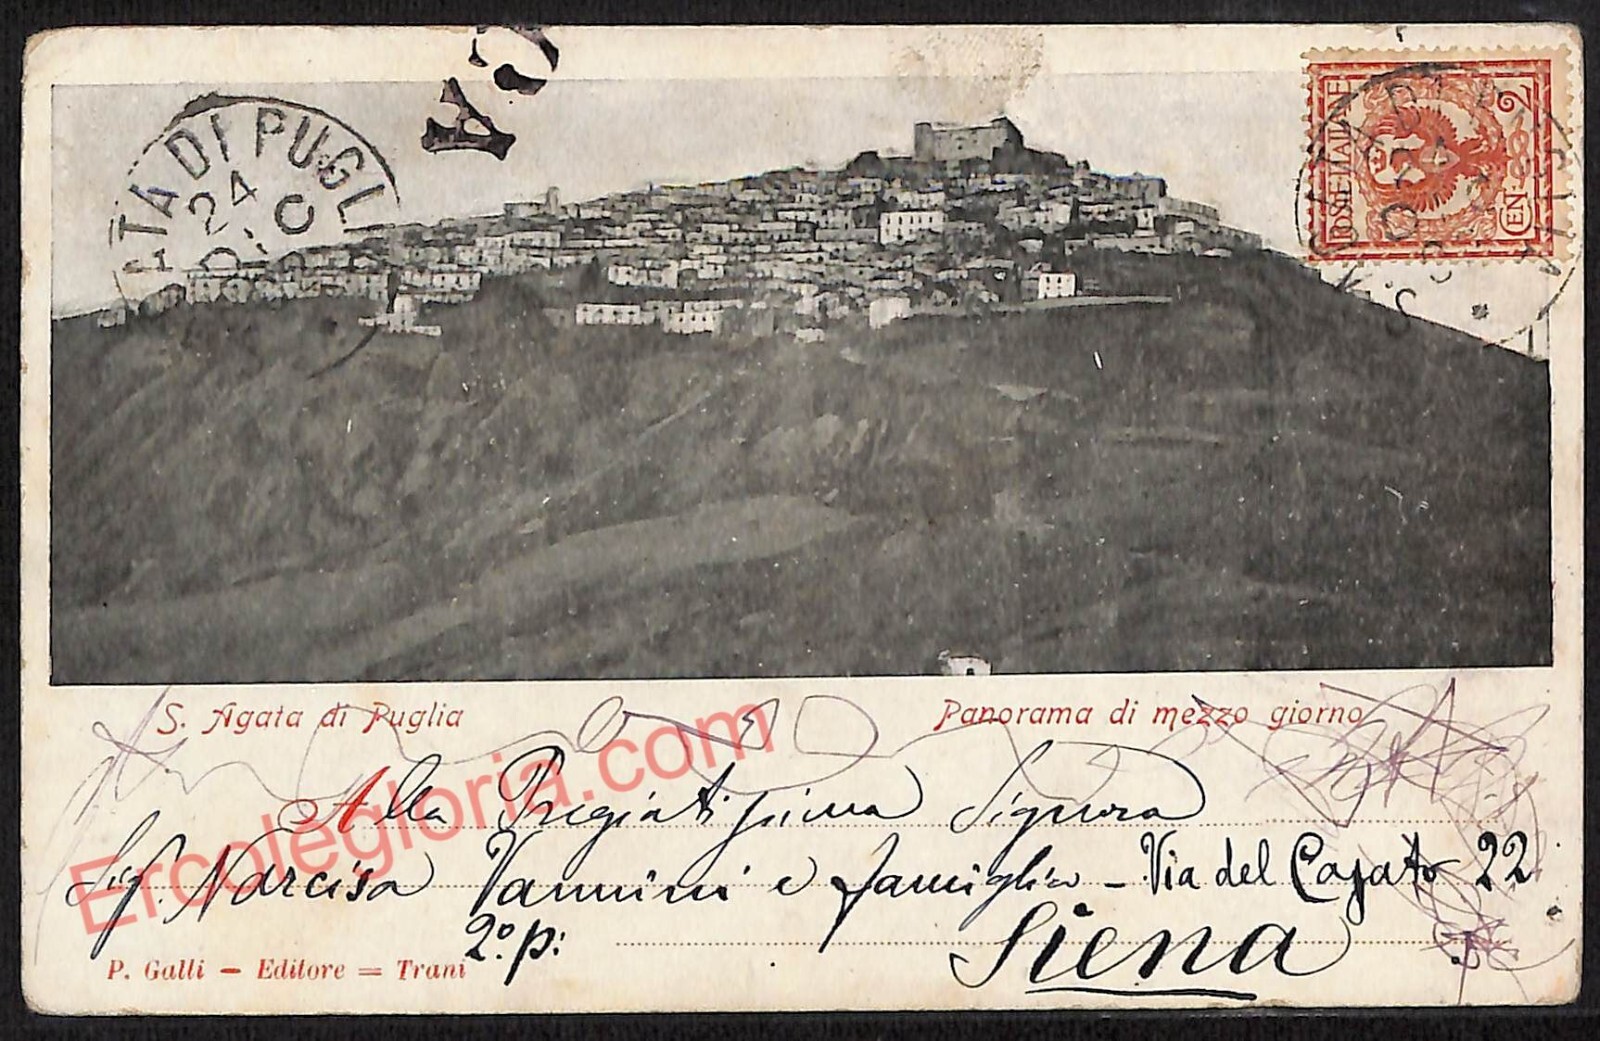 ATA DI PUGLI
24
DIC
POSTE ITALIANE
CEN. 2
S. Agata di Puglia
Panorama di mezzo giorno
Ercolegloria.com
Alla Pregiatissima Signora
Sig. Narcisa Vannini e famiglia - Via del Casato 22
2º. p:
Siena
P. Galli - Editore = Trani